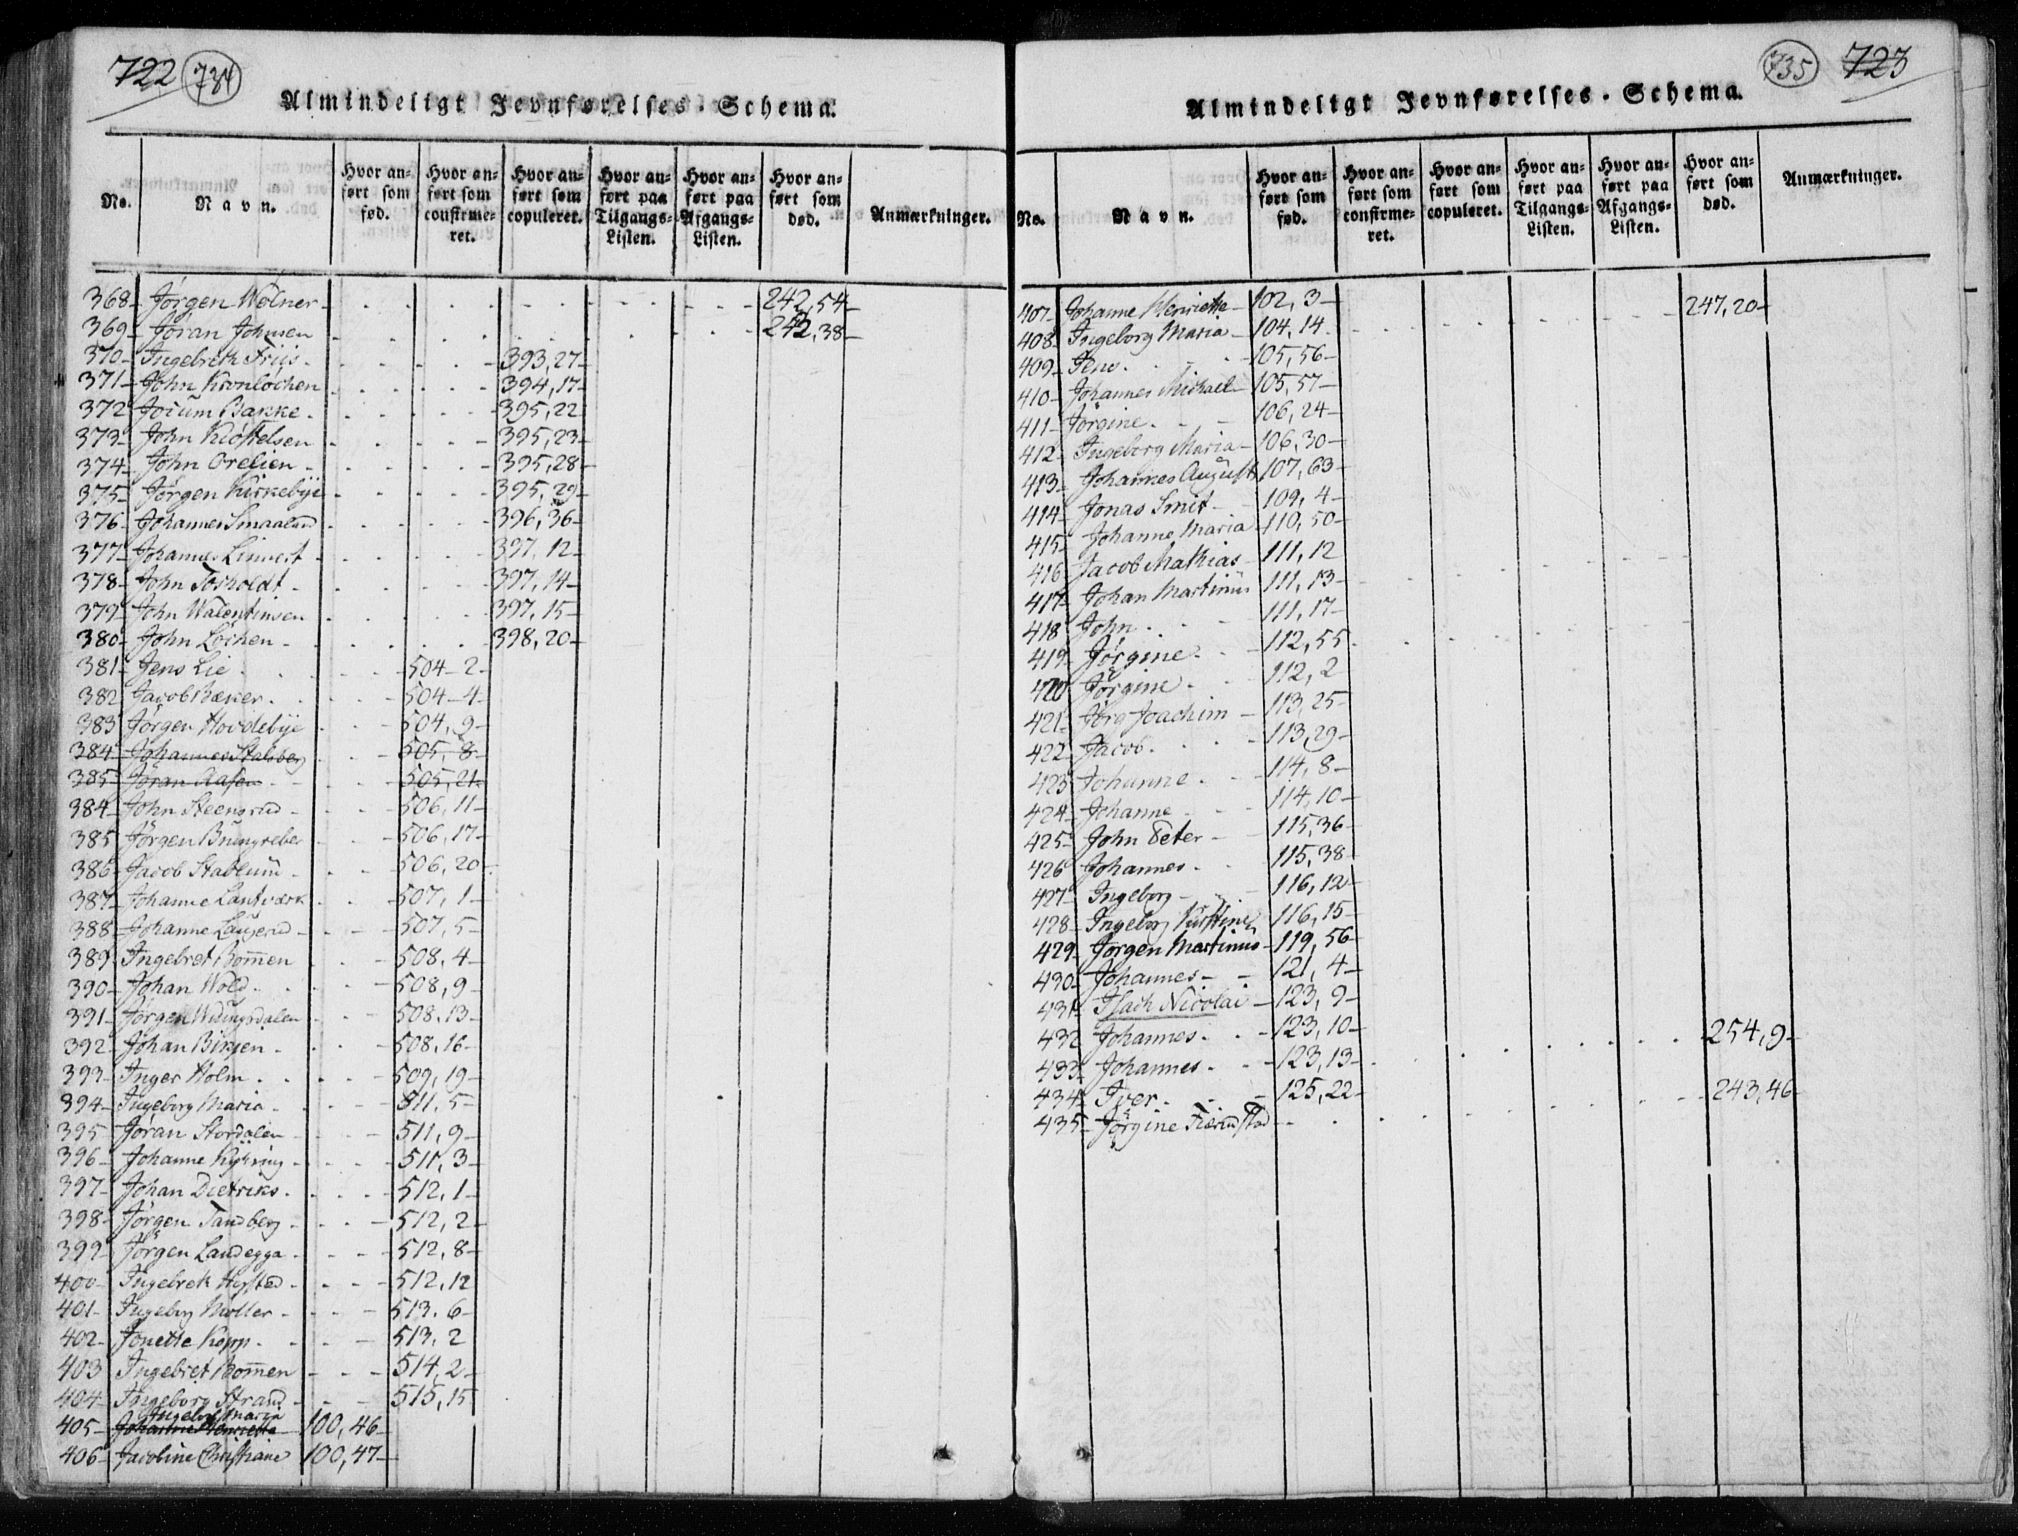 722 734
Almindeligt Jevnførelses-Schema.
No. Navn. Hvor anført som fød. Hvor anført som confirmeret. Hvor anført som copuleret. Hvor anført paa Tilgangs-Listen. Hvor anført paa Afgangs-Listen. Hvor anført som død. Anmærkninger.
368 Jørgen Wølner 242,54
369 Jøran Johnsen 242,38
370 Ingebreth Friis 393,27
371 John Kronløchen 394,17
372 Jocum Bakke 395,22
373 John Kiøstelsen 395,23
374 John Orelien 395,28
375 Jørgen Kirkebye 395,29
376 Johannes Smaaland 396,36
377 Johannes Linnert 397,12
378 John Torholdt 397,14
379 John Walentinsen 397,15
380 John Løchen 398,20
381 Jens Lie 504-2
382 Jacob Bæker 504-4
383 Jørgen Hovdebye 504,9
384 Johannes Stalsberg 505,8
385 Jøran Aasen 505,21
384 John Steensrud 506,11
385 Jørgen 506,17
386 Jacob Stablum 506,20
387 Johanne Lantværk 507,1
388 Johanne Laugerud 507,5
389 Ingebret Bom̄en 508,4
390 Johan Wold 508,9
391 Jørgen Wiungsdalen 508,13
392 Johan Birgen 508,16
393 Inger Holm 509,19
394 Ingeborg Maria 511,5
395 Jøran Stordalen 511,9
396 Johanne 511,3
397 Johan Dietriks 512,1
398 Jørgen Tandberg 512,2
399 Jørgen Landegga 512,8
400 Ingebrek Hysted 512,12
401 Ingeborg Møller 513,6
402 Jonette Kopp 513,2
403 Ingebret Bom̄en 514,2
404 Ingeborg Strand 515,15
Ingeborg Maria
405 Johanne Henriette 100,46
406 Jacobine Christiane 100,47
735 723
Almindeligt Jevnførelses-Schema.
No. Navn. Hvor anført som fød. Hvor anført som confirmeret. Hvor anført som copuleret. Hvor anført paa Tilgangs-Listen. Hvor anført paa Afgangs-Listen. Hvor anført som død. Anmærkninger.
407 Johanne Henriette 102,3 247,20
408 Ingeborg Maria 104,14
409 Jens 105,56
410 Johannes Michael 105,57
411 Jørgine 106,24
412 Ingeborg Maria 106,30
413 Johannes August 107,63
414 Jonas Smit 109,4
415 Johanne Maria 110,50
416 Jacob Mathias 111,12
417 Johan Martinus 111,13
418 John 111,17
419 Jørgine 112,55
420 Jørgine 112,2
421 Jørg Joachim 113,25
422 Jacob 113,29
423 Johanne 114,8
424 Johanne 114,10
425 John Peter 115,36
426 Johannes 115,38
427 Ingeborg 116,12
428 Ingeborg Kirstine 116,15
429 Jørgen Martinus 119,56
430 Johannes 121,4
431 Isach Nicolai 123,9
432 Johannes 123,10 254,9
433 Johannes 123,13
434 Iver 125,22 243,46
435 Jørgine Fierdstad